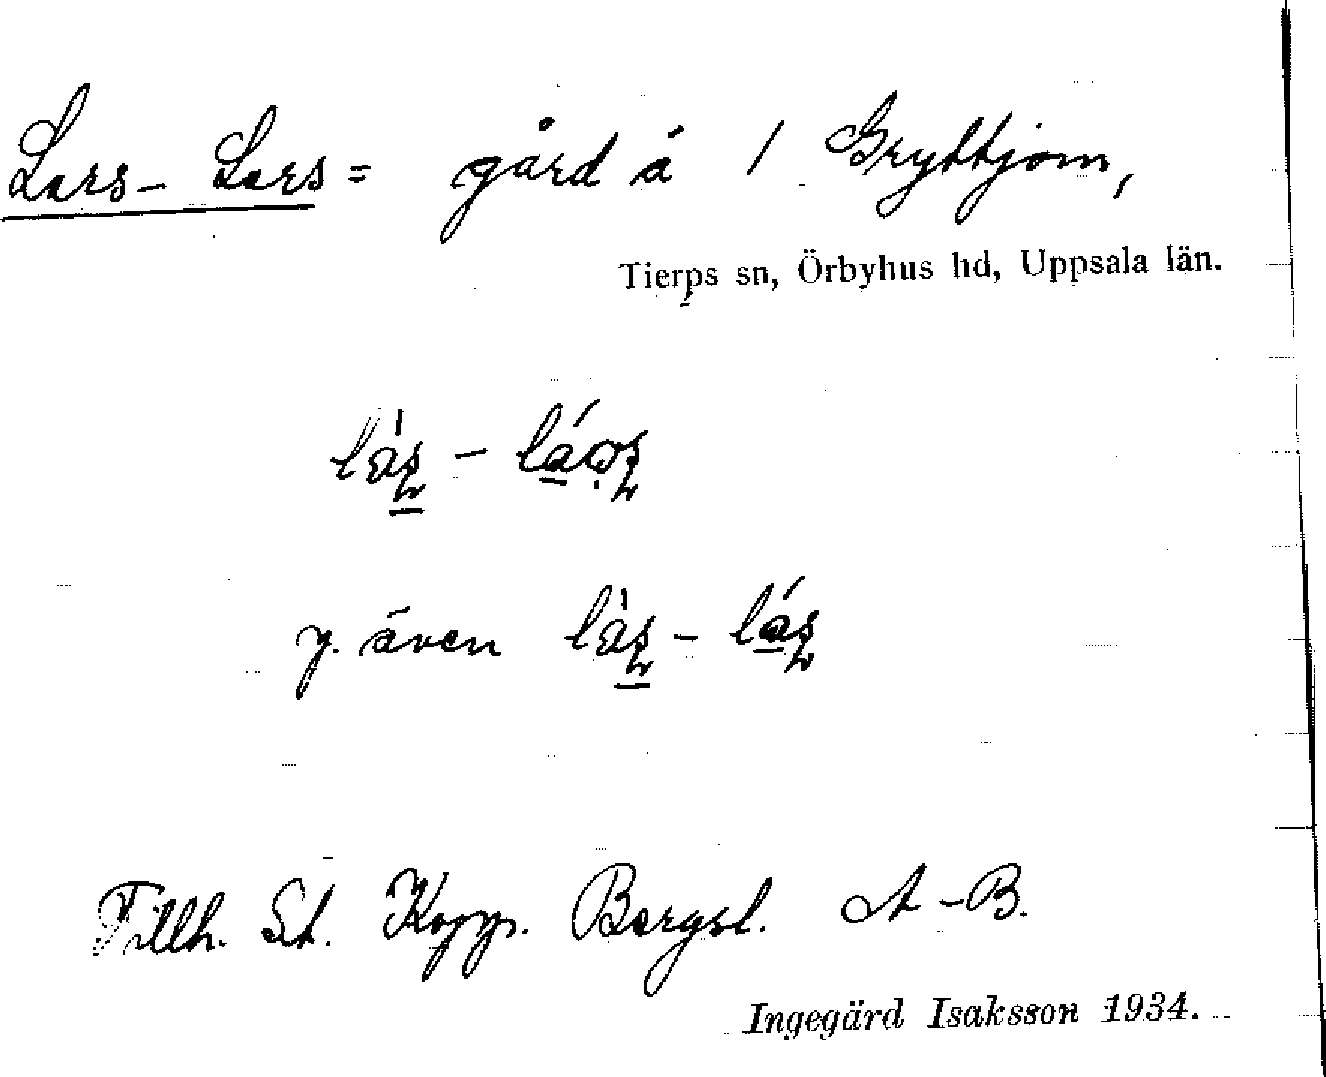 Lars-Lars = gård å 1 Gryttjom,
Tierps sn, Örbyhus hd, Uppsala län.
y. även
Tillh. St. Kopp. Bergsl. A-B.
Ingegärd Isaksson 1934.